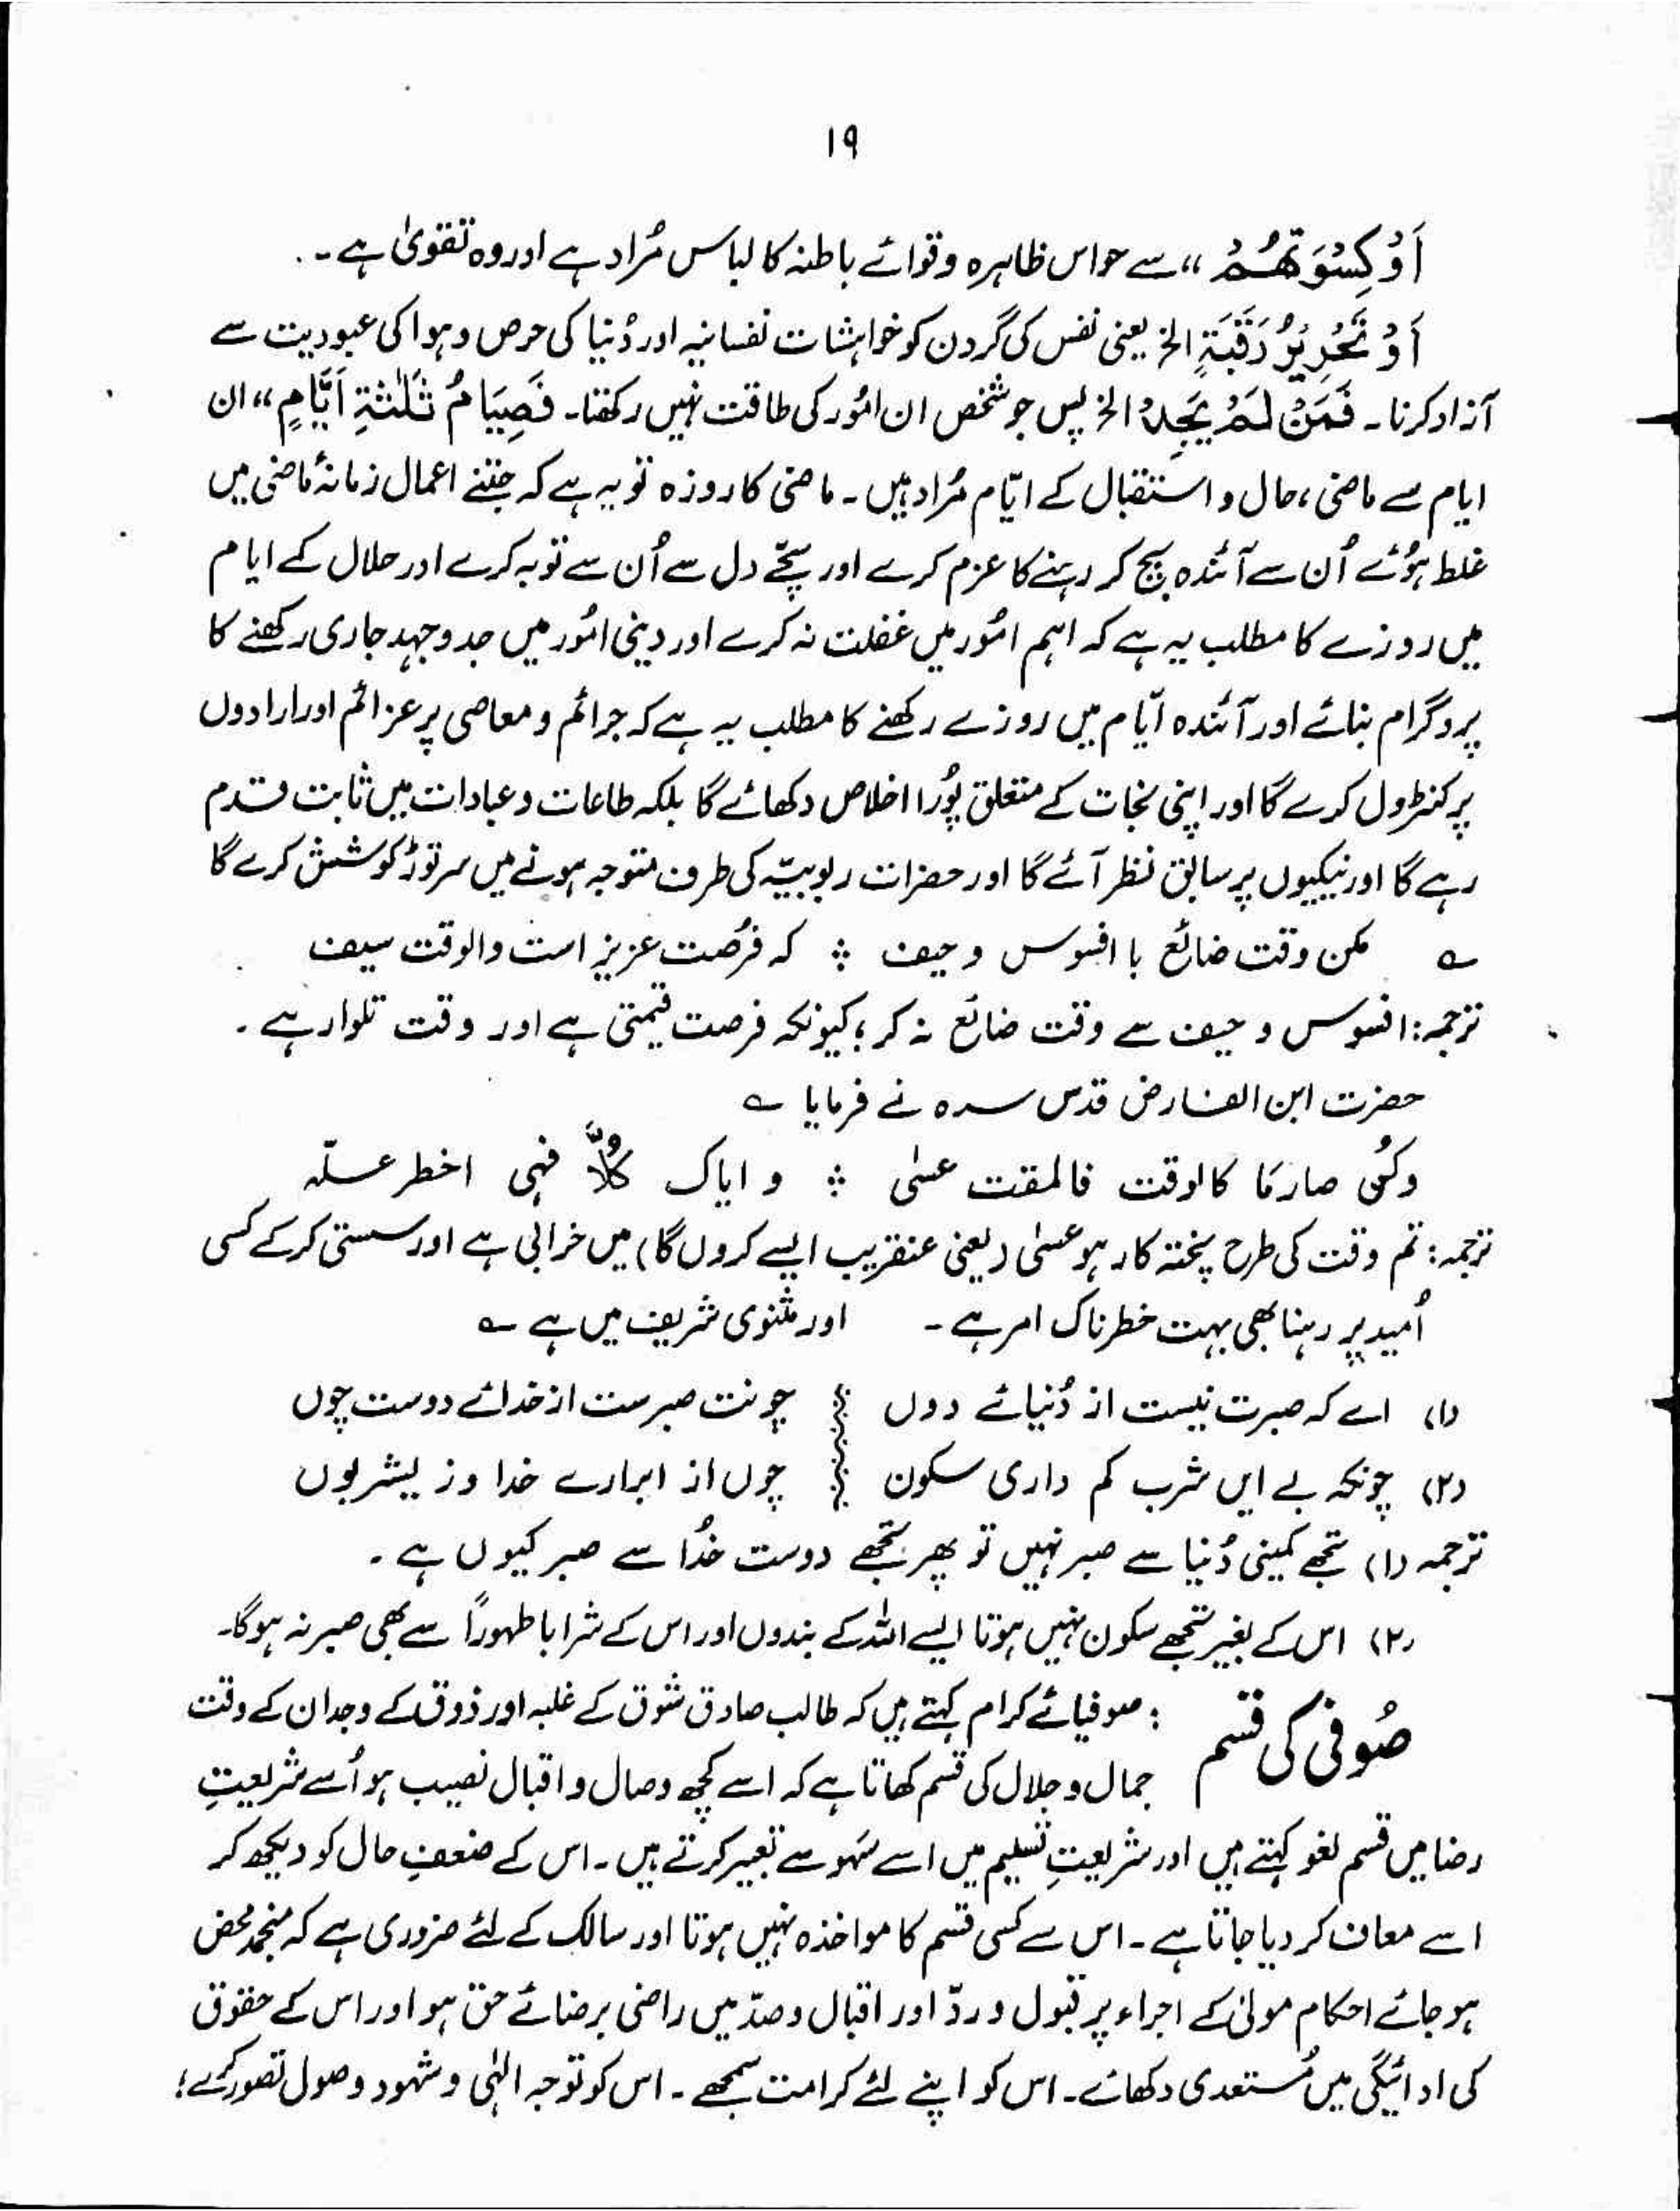 ۱۹
اَوْ كِسْوَتُهُمْ ،، سے حواس ظاہرہ وقوائے باطنہ کا لباس مُراد ہے اور وہ تقویٰ ہے ۔
اَوْ تَحْرِيْرُ رَقَبَةٍ الخ یعنی نفس کی گردن کو خواہشات نفسانیہ اور دُنیا کی حرص و ہوا کی عبودیت سے
آزاد کرنا ۔ فَمَنْ لَمْ يَجِدْ الخ پس جو شخص ان امُور کی طاقت نہیں رکھتا ۔ فَصِيَامُ ثَلٰثَةِ اَيَّامٍ ،، ان
ایام سے ماضی ، حال و استقبال کے ایّام مُراد ہیں ۔ ماضی کا روزہ تو یہ ہے کہ جتنے اعمال زمانۂ ماضی میں
غلط ہُوئے اُن سے آئندہ بچ کر رہنے کا عزم کرے اور سچّے دل سے اُن سے توبہ کرے اور حلال کے ایام
میں روزے کا مطلب یہ ہے کہ اہم امُور میں غفلت نہ کرے اور دینی امُور میں جدوجہد جاری رکھنے کا
پروگرام بنائے اور آئندہ ایّام میں روزے رکھنے کا مطلب یہ ہے کہ جرائم و معاصی پر عزائم اور ارادوں
پر کنٹرول کرے گا اور اپنی نجات کے متعلق پُورا اخلاص دکھائے گا بلکہ طاعات و عبادات میں ثابت قدم
رہے گا اور نیکیوں پر سابق نظر آئے گا اور حضرات ربوبیّہ کی طرف متوجہ ہونے میں سر توڑ کوشش کرے گا
؎ مکن وقت ضائع با افسوس و حیف ؞ کہ فرُصت عزیز است والوقت سیف
ترجمہ : افسوس و حیف سے وقت ضائع نہ کر ؛ کیونکہ فرصت قیمتی ہے اور وقت تلوار ہے ۔
حضرت ابن الفارض قدس سرہ نے فرمایا ؎
وکُن صارمًا کالوقت فالمقت عسٰی ؞ و ایاک کُلّاً فہی اخطر علّۃ
ترجمہ : تم وقت کی طرح پختہ کار ہو عسٰی (یعنی عنقریب ایسے کروں گا) میں خرابی ہے اور سستی کرکے کسی
اُمید پر رہنا بھی بہت خطرناک امر ہے ۔ اور مثنوی شریف میں ہے ؎
(۱) اے کہ صبرت نیست از دُنیائے دوں چونت صبرست از خدائے دوست چوں
(۲) چونکہ بے ایں شرب کم داری سکون چوں از ابرارے خدا وز یشربوں
ترجمہ (۱) تجھے کمینی دُنیا سے صبر نہیں تو پھر تجھے دوست خُدا سے صبر کیوں ہے ۔
(۲) اس کے بغیر تجھے سکون نہیں ہوتا ایسے اللہ کے بندوں اور اس کے شرابا طہوراً سے بھی صبر نہ ہوگا ۔
صُوفی کی قسم : صوفیائے کرام کہتے ہیں کہ طالب صادق شوق کے غلبہ اور ذوق کے وجدان کے وقت
جمال و جلال کی قسم کھاتا ہے کہ اسے کچھ وصال و اقبال نصیب ہو اُسے شریعتِ
رضا میں قسم لغو کہتے ہیں اور شریعتِ تسلیم میں اسے سَہو سے تعبیر کرتے ہیں ۔ اس کے ضعفِ حال کو دیکھ کر
اسے معاف کر دیا جاتا ہے ۔ اس سے کسی قسم کا مواخذہ نہیں ہوتا اور سالک کے لئے ضروری ہے کہ منجمد محض
ہو جائے احکام مولیٰ کے اجراء پر قبول و ردّ اور اقبال و صدّ میں راضی برضائے حق ہو اور اس کے حقوق
کی ادائیگی میں مُستعدی دکھائے ۔ اس کو اپنے لئے کرامت سمجھے ۔ اس کو توجہ الٰہی و شہود وصول تصور کرے ؛